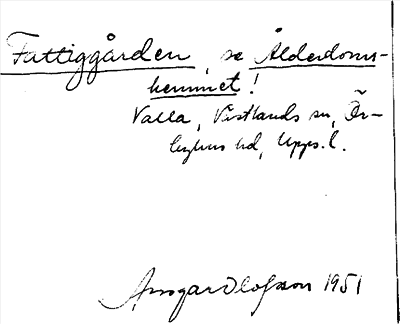 Fattiggården, se Ålderdoms-
hemmet!
Valla, Västlands sn, Ör-
byhus hd, Upps.l.
Ansgar Olofsson 1951